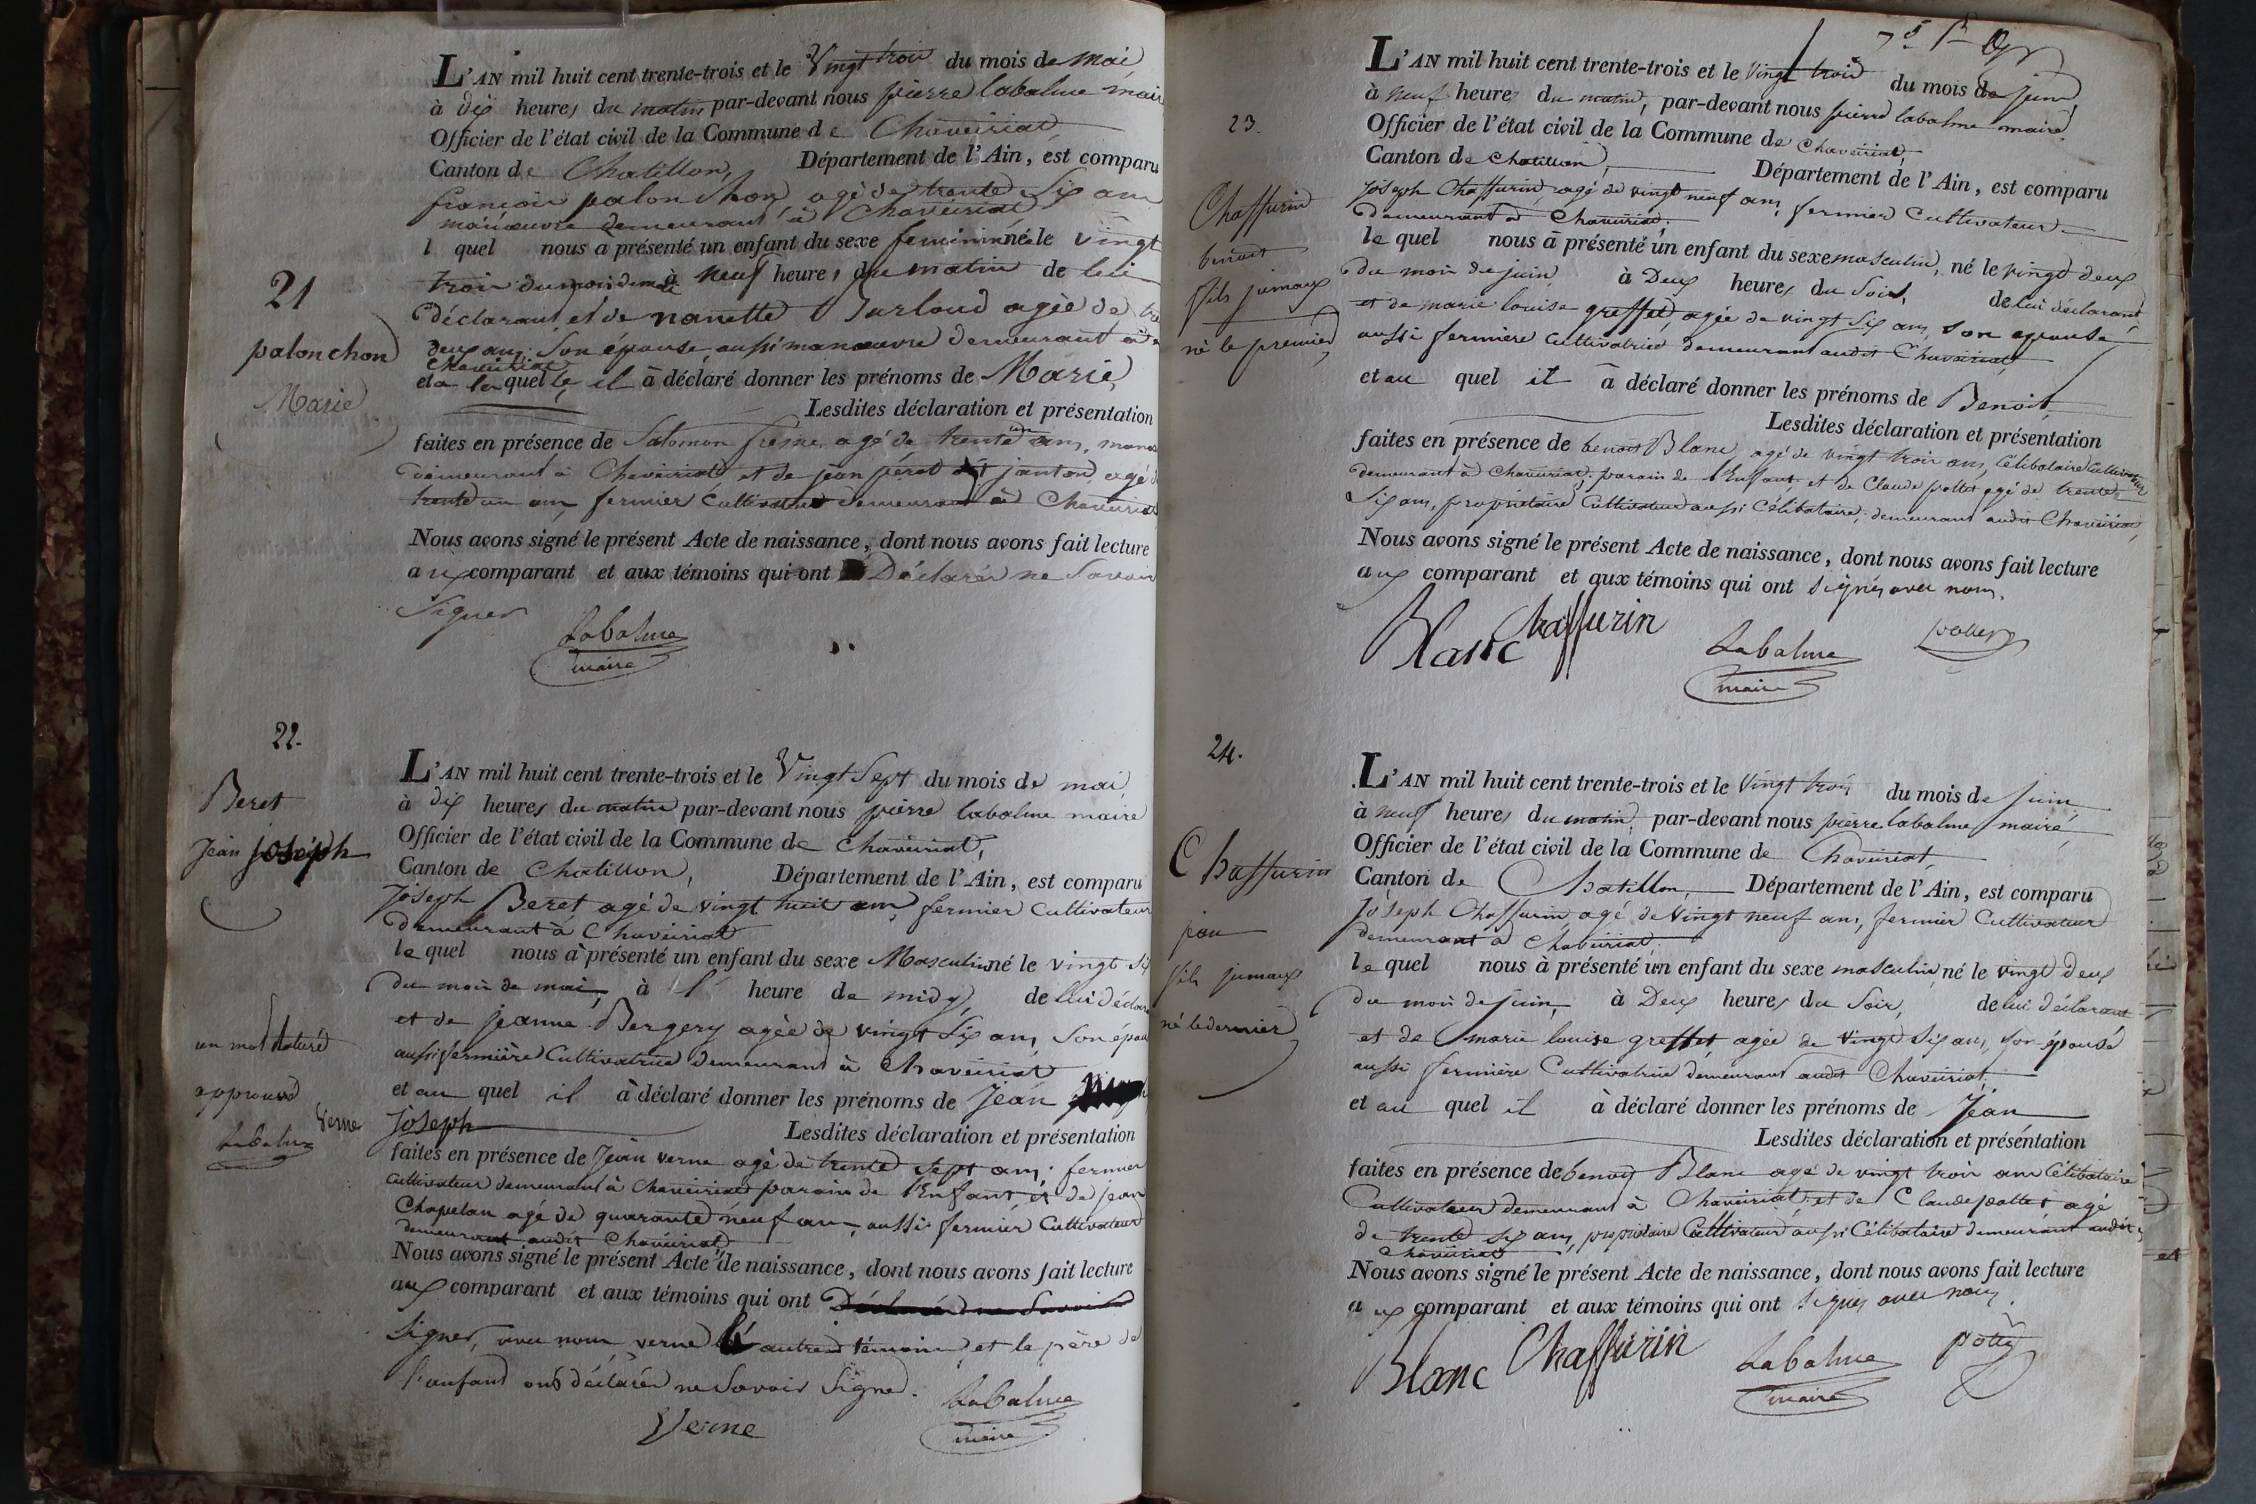 L'AN mil huit cent trente-trois et le Vingt trois du mois de mai
à dix heures du matin par-devant nous pierre labalme maire
Officier de l'état civil de la Commune de Chaveiriat
Canton de Chatillon, Département de l'Ain, est comparu
françois palonchon agé de trente six ans
manœuvre demeurant à Chaveiriat
l quel nous a présenté un enfant du sexe feminin né le vingt
trois du mois de mai à neuf heures du matin de lui
déclarant et de nanette Surloud agée de
deux ans Son épouse aussi manœuvre demeurant à
Chaveiriat
et a la quelle il à déclaré donner les prénoms de Marie
Lesdites déclaration et présentation
faites en présence de Salomon agé de trente ans,
demeurant à Chaveiriat et de jean péret dit janton agé
trente un ans fermier Cultivateur demeurant à Chaveiriat
Nous avons signé le présent Acte de naissance, dont nous avons fait lecture
aux comparant et aux témoins qui ont Déclarés ne Savoir
Signer
Labalme
maire
21
palonchon
Marie
22.
Beret
Jean joseph
un mot raturé
approuvé
Verne
Labalme
L'AN mil huit cent trente-trois et le Vingt Sept du mois de mai
à dix heures du matin par-devant nous pierre labalme maire
Officier de l'état civil de la Commune de Chaveiriat,
Canton de Chatillon, Département de l'Ain, est comparu
Joseph Beret agé de vingt huit ans fermier Cultivateur
demeurant à Chaveiriat
le quel nous à présenté un enfant du sexe Masculin né le vingt six
du mois de mai, à l' heure de midy, de lui déclarant
et de jeanne Bergery agée de vingt Six ans Son épouse
aussi fermière Cultivatrice demeurant à Chaveiriat
et au quel il à déclaré donner les prénoms de Jean
Joseph Lesdites déclaration et présentation
faites en présence de Jean verne agé de trente sept ans fermier
cultivateur demeurant à Chaveiriat parain de l'Enfant et de jean
Chapelan agé de quarante neuf ans aussi fermier Cultivateur
demeurant audit Chaveiriat
Nous avons signé le présent Acte de naissance, dont nous avons fait lecture
aux comparant et aux témoins qui ont Déclarés ne Savoir
Signer, avec nous verne autre témoin et le père de
l'enfant ont déclarés ne Savoir Signer.
Verne
Labalme
maire
23.
Chaffurin
benoit
fils jumaux
né le premier
L'AN mil huit cent trente-trois et le vingt trois du mois de juin
à neuf heures du matin, par-devant nous pierre labalme maire
Officier de l'état civil de la Commune de Chaveiriat
Canton de Chatillon, Département de l'Ain, est comparu
Joseph Chaffurin agé de vingt neuf ans, fermier Cultivateur
demeurant à Chaveiriat.
le quel nous à présenté un enfant du sexe masculin, né le vingt deux
du mois de juin à Deux heures du Soir, de lui déclarant
et de marie louise greffet, agée de vingt Six ans, son épouse
aussi fermière cultivatrice demeurant audit Chaveiriat
et au quel il à déclaré donner les prénoms de Benoit
Lesdites déclaration et présentation
faites en présence de benoit Blanc, agé de vingt trois ans, Célibataire Cultivateur
demeurant à Chaveiriat, parain de l'Enfant, et de Claude pollet agé de trente
Six ans, propriétaire Cultivateur aussi Célibataire, demeurant audit Chaveiriat
Nous avons signé le présent Acte de naissance, dont nous avons fait lecture
aux comparant et aux témoins qui ont signés avec nous.
Blanc Chaffurin
Labalme
maire
24.
Chaffurin
jean
fils jumaux
né le dernier
L'AN mil huit cent trente-trois et le Vingt trois du mois de juin
à neuf heures du matin, par-devant nous pierre labalme, maire
Officier de l'état civil de la Commune de Chaveiriat
Canton de Chatillon, Département de l'Ain, est comparu
Joseph Chaffurin, agé de Vingt neuf ans, fermier Cultivateur
demeurant à Chaveiriat.
le quel nous à présenté un enfant du sexe masculin, né le vingt Deux
du mois de juin, à Deux heures du Soir, de lui déclarant
et de marie louise greffet, agée de Vingt Six ans, son épouse
aussi fermière Cultivatrice demeurant audit Chaveiriat
et au quel il à déclaré donner les prénoms de Jean
Lesdites déclaration et présentation
faites en présence de benoit Blanc agé de vingt trois ans Célibataire
Cultivateur demeurant à Chaveiriat et de Claude pollet agé
de trente six ans, propriétaire Cultivateur aussi Célibataire demeurant audit
Chaveiriat
Nous avons signé le présent Acte de naissance, dont nous avons fait lecture
aux comparant et aux témoins qui ont signés avec nous.
Blanc Chaffurin
Labalme
maire